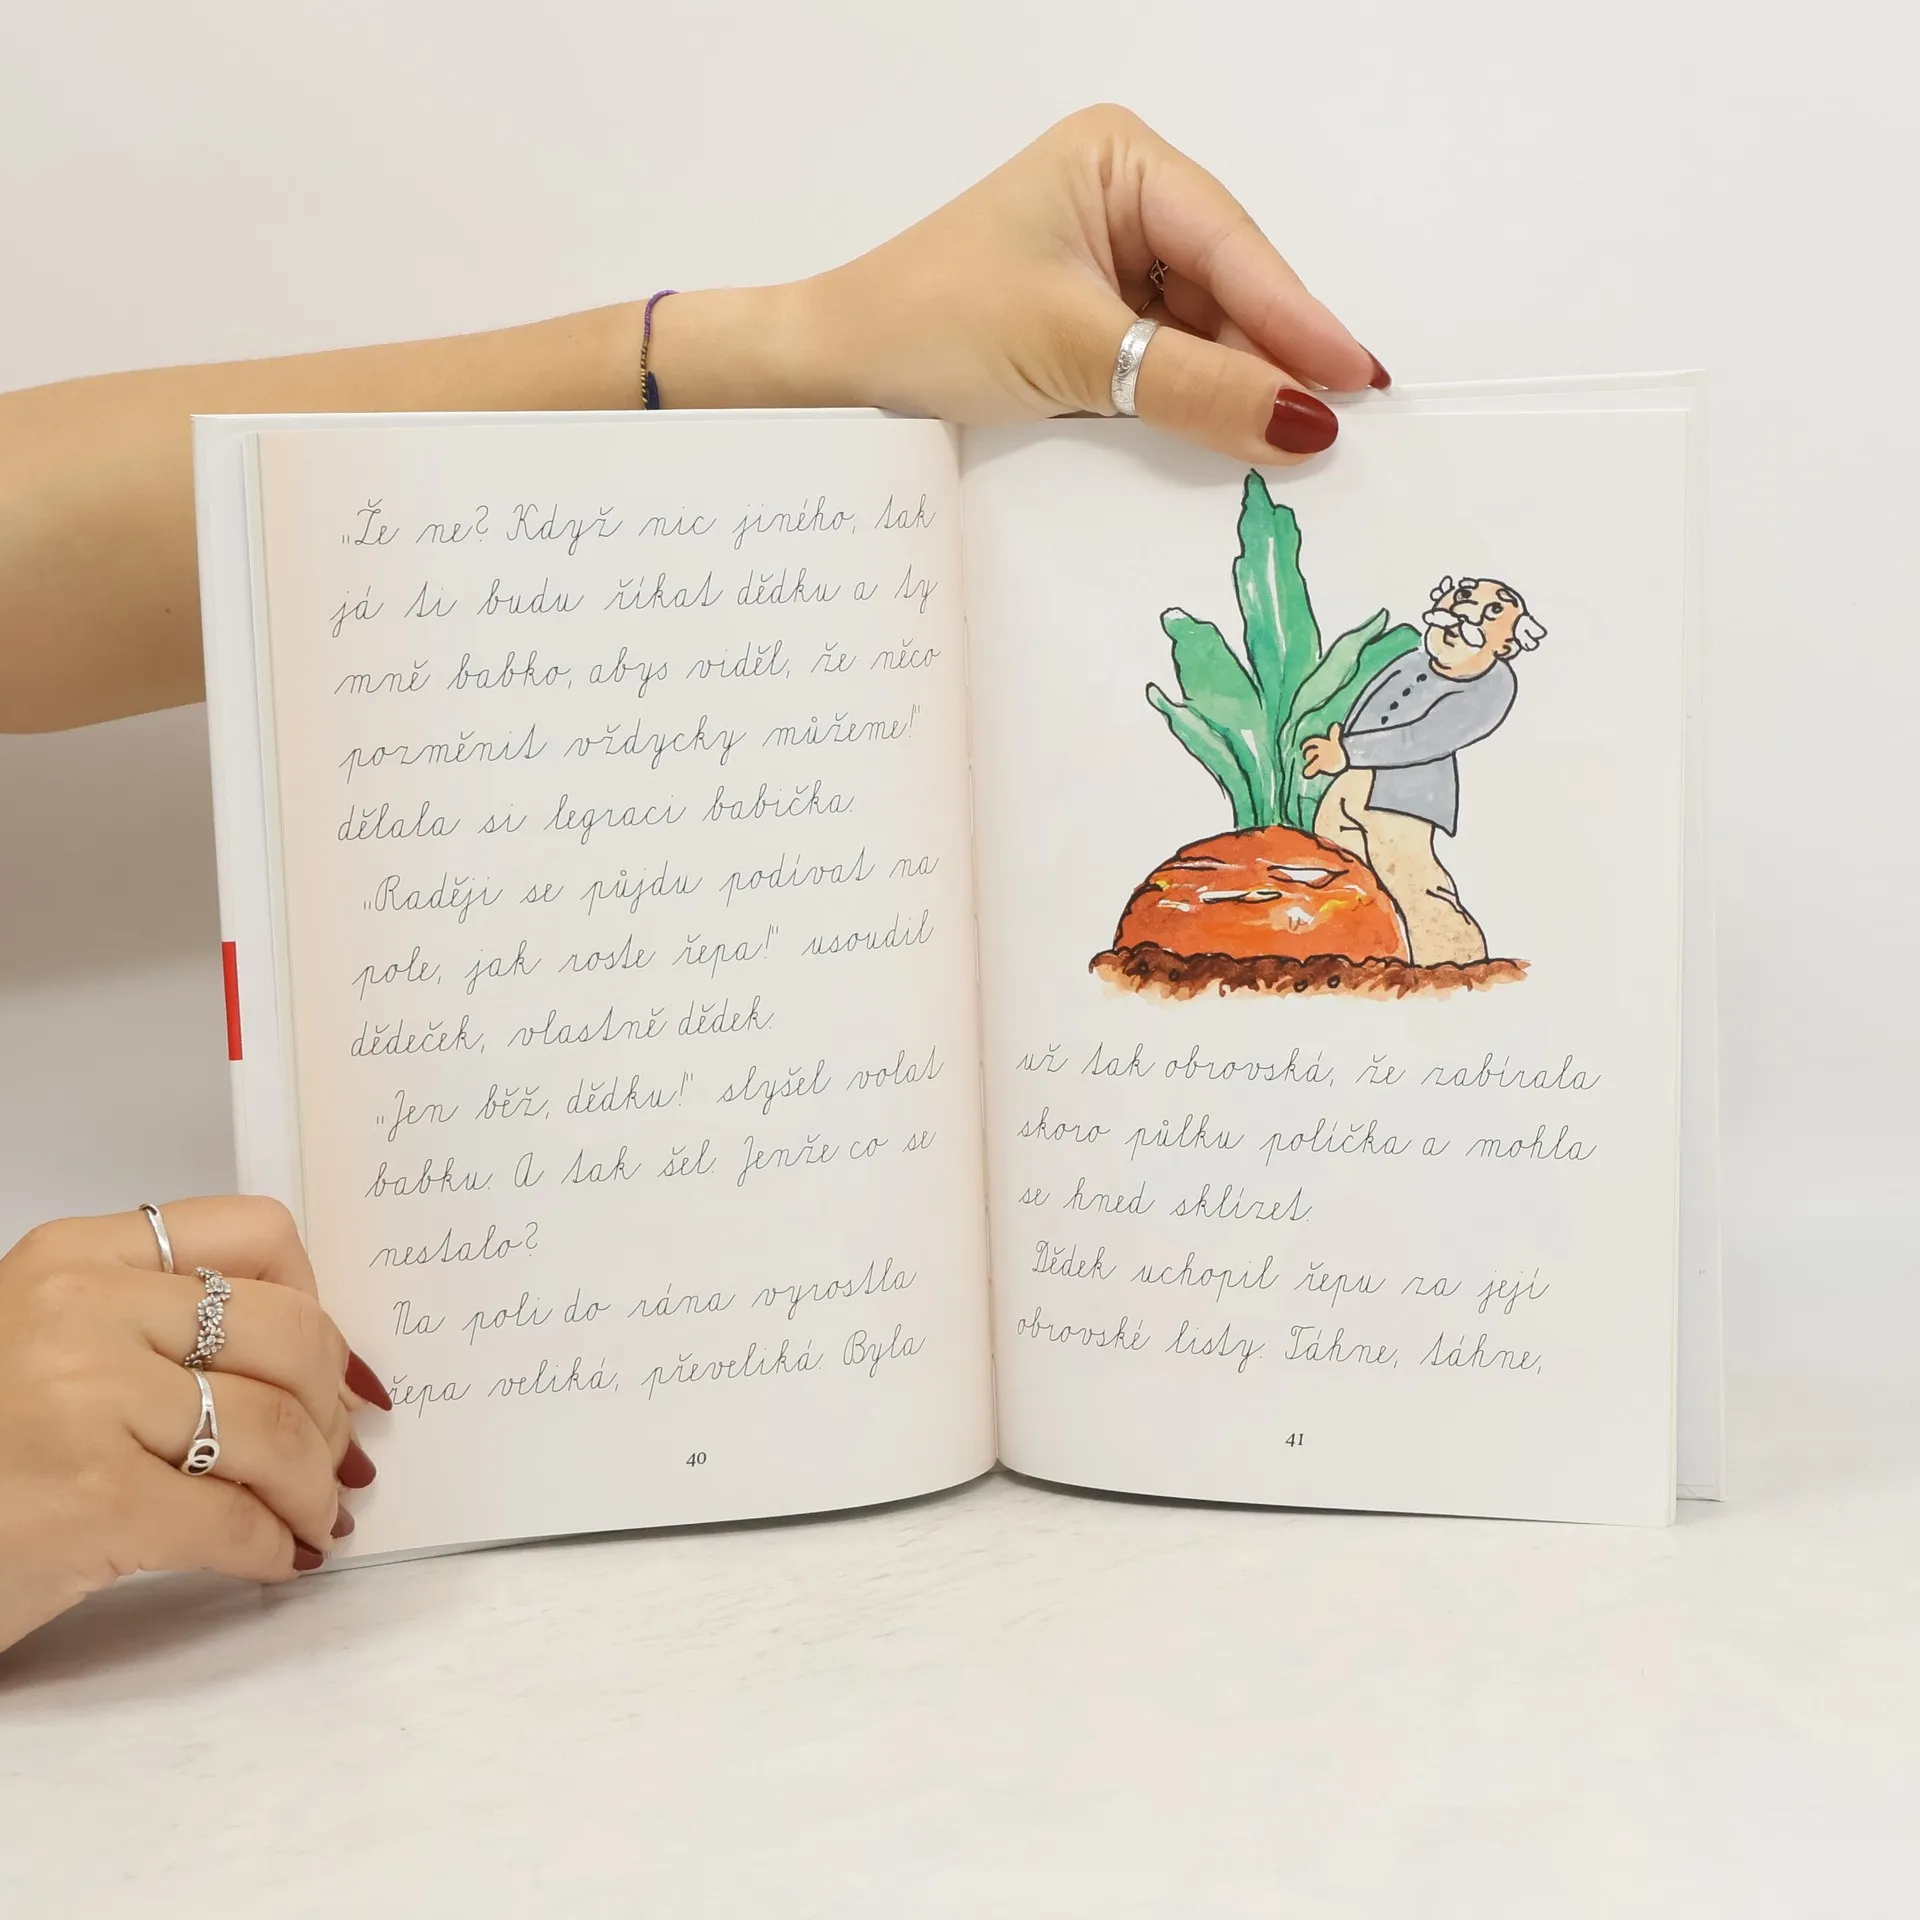 „Že ne? Když nic jiného, tak
já ti budu říkat dědku a ty
mně babko, abys viděl, že něco
pozměnit vždycky můžeme!"
dělala si legraci babička.
„Raději se půjdu podívat na
pole, jak roste řepa!" usoudil
dědeček, vlastně dědek.
„Jen běž, dědku!" slyšel volat
babku. A tak šel. Jenže co se
nestalo?
Na poli do rána vyrostla
řepa veliká, převeliká. Byla
40
už tak obrovská, že zabírala
skoro půlku políčka a mohla
se hned sklízet.
Dědek uchopil řepu za její
obrovské listy. Táhne, táhne,
41